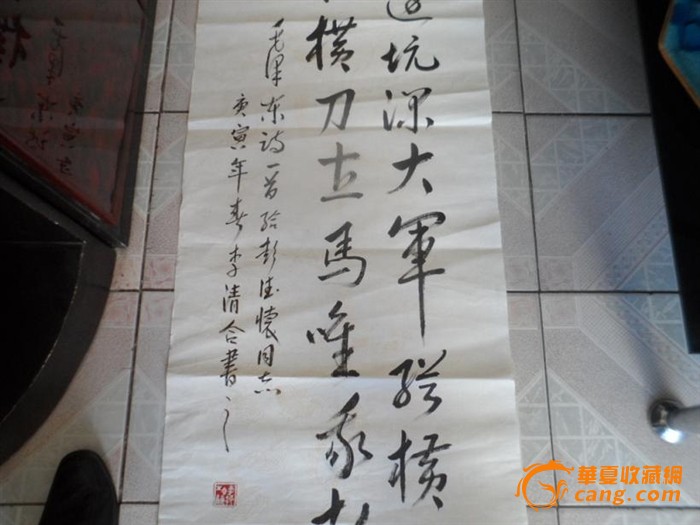 坑深大军纵横
横刀立马唯我
毛泽东诗一首给彭德怀同志
庚寅年春李清合书
華夏收藏網
cang.com